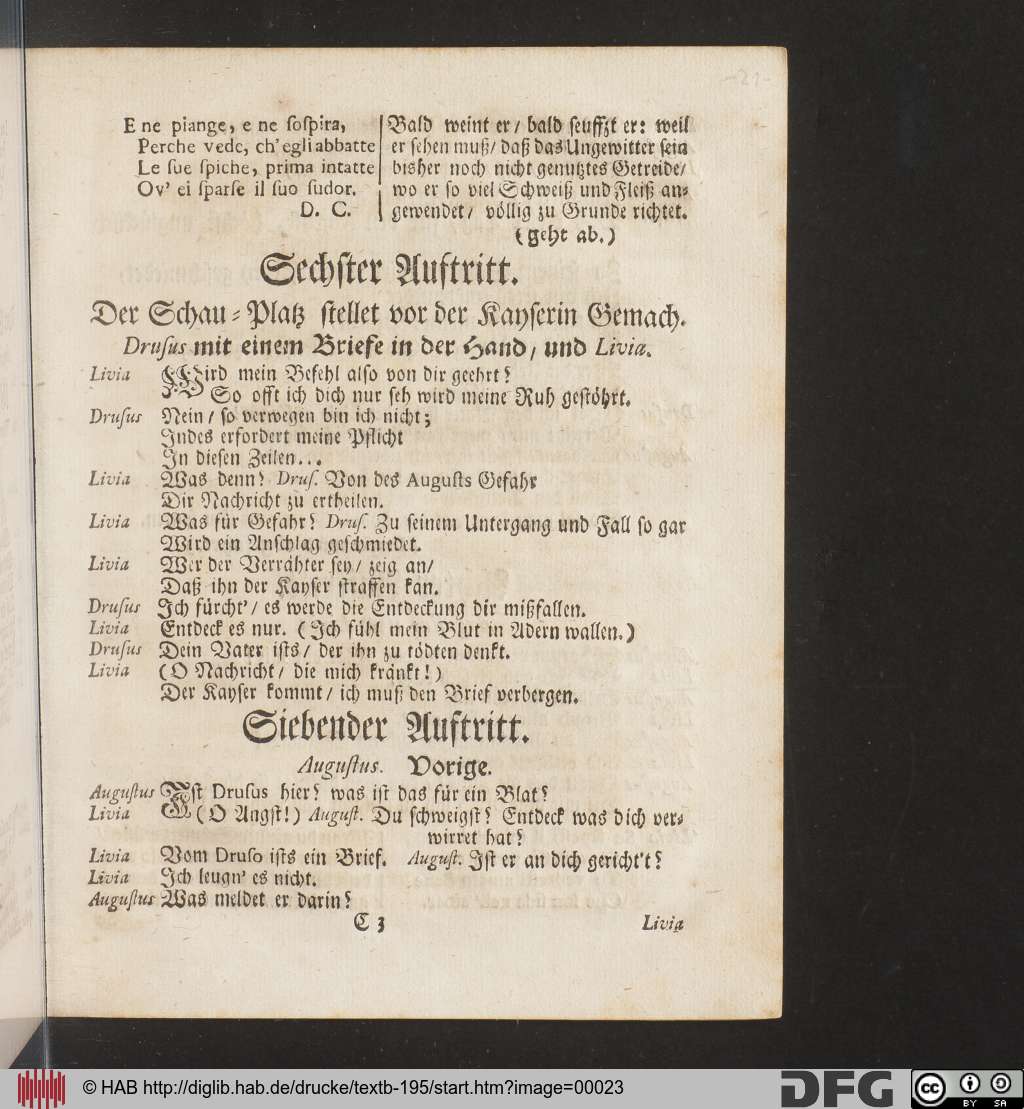 -21-
E ne piange, e ne ſoſpira,
Perche vede, ch'egli abbatte
Le ſue ſpiche, prima intatte
Ov' ei ſparſe il ſuo ſudor.
D. C.
Bald weint er/ bald ſeuffzt er: weil
er ſehen muß/ daß das Ungewitter ſein
bisher noch nicht genutztes Getreide/
wo er ſo viel Schweiß und Fleiß an⸗
gewendet/ völlig zu Grunde richtet.
(geht ab.)
Sechſter Auftritt.
Der Schau⸗Platz ſtellet vor der Kayſerin Gemach.
Druſus mit einem Briefe in der Hand/ und Livia.
Livia Wird mein Befehl alſo von dir geehrt?
So offt ich dich nur ſeh wird meine Ruh geſtöhrt.
Druſus Nein/ ſo verwegen bin ich nicht;
Indes erfordert meine Pflicht
In dieſen Zeilen...
Livia Was denn? Druſ. Von des Auguſts Gefahr
Dir Nachricht zu ertheilen.
Livia Was für Gefahr? Druſ. Zu ſeinem Untergang und Fall ſo gar
Wird ein Anſchlag geſchmiedet.
Livia Wer der Verrähter ſey/ zeig an/
Daß ihn der Kayſer ſtraffen kan.
Druſus Ich fürcht'/ es werde die Entdeckung dir mißfallen.
Livia Entdeck es nur. (Ich fühl mein Blut in Adern wallen.)
Druſus Dein Vater iſts/ der ihn zu tödten denkt.
Livia (O Nachricht/ die mich kränkt!)
Der Kayſer kommt/ ich muß den Brief verbergen.
Siebender Auftritt.
Auguſtus. Vorige.
Auguſtus Iſt Druſus hier? was iſt das für ein Blat?
Livia (O Angſt!) Auguſt. Du ſchweigſt? Entdeck was dich ver⸗
wirret hat?
Livia Vom Druſo iſts ein Brief. Auguſt. Iſt er an dich gericht't?
Livia Ich leugn' es nicht.
Auguſtus Was meldet er darin?
C 3
Livia
© HAB http://diglib.hab.de/drucke/textb-195/start.htm?image=00023
DFG
cc BY SA